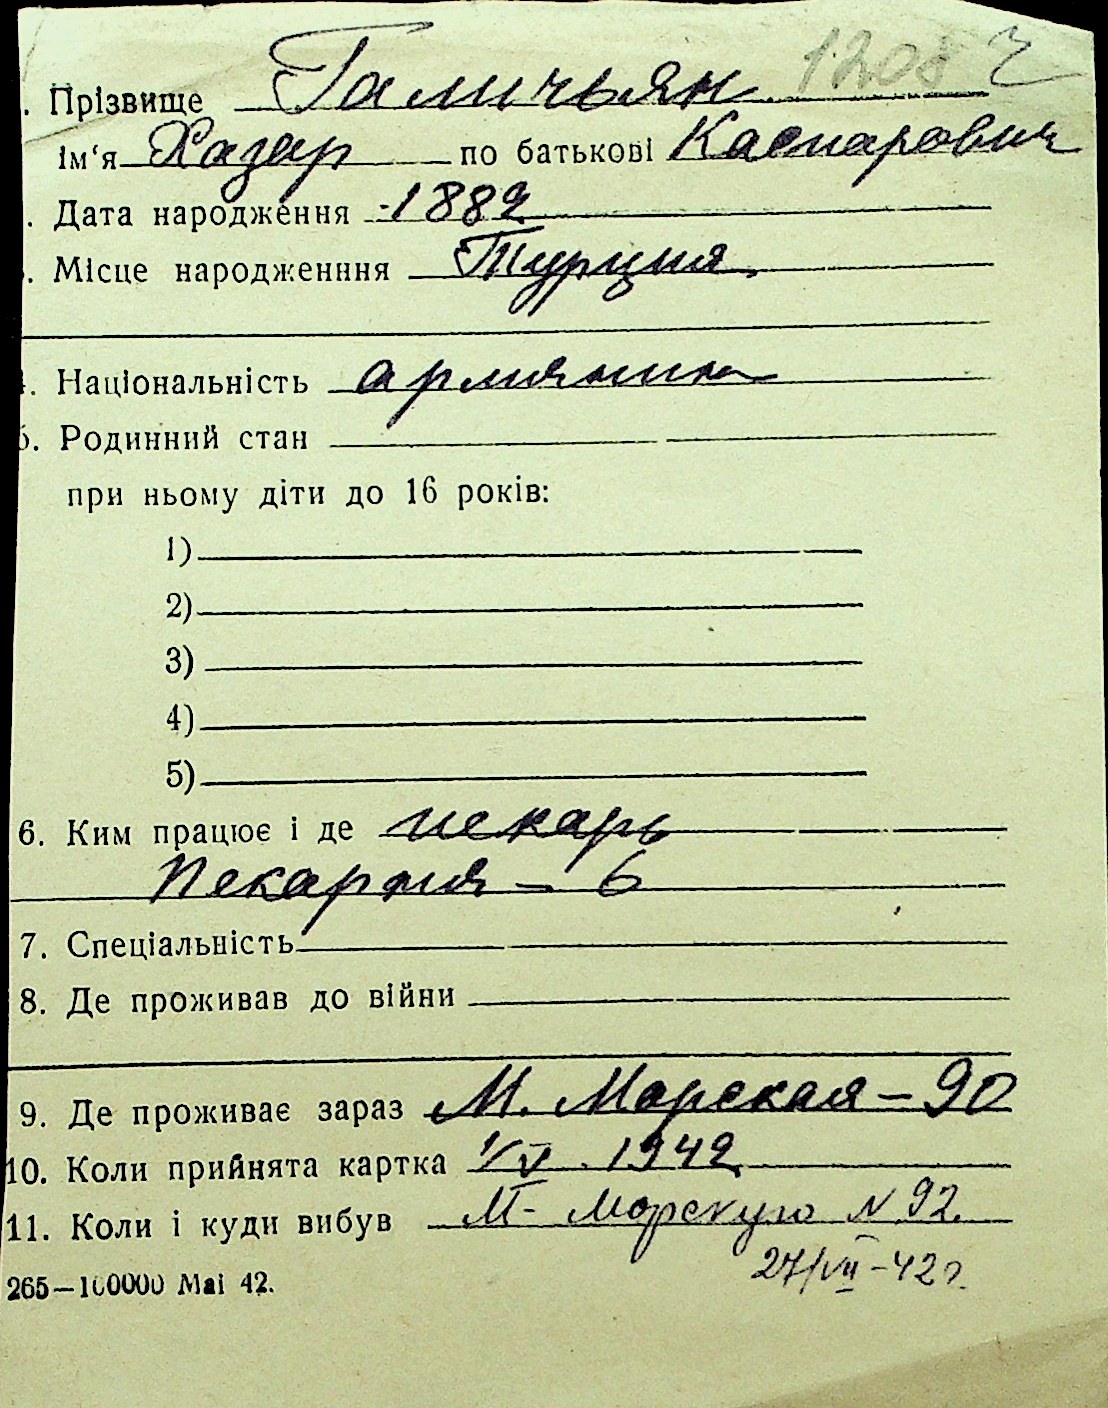 1208 г
. Прізвище Галичьян
ім‘я Хазар по батькові Каспарович
. Дата народження 1882
. Місце народженння Турция
4. Національність армянин
5. Родинний стан
при ньому діти до 16 років:
1)
2)
3)
4)
5)
6. Ким працює і де пекарь
Пекарня – 6
7. Спеціальність
8. Де проживав до війни
9. Де проживає зараз М. Морская – 90
10. Коли прийнята картка 1/V . 1942
11. Коли і куди вибув М- Морскую N 92.
27/VII – 42 г.
265—100000 Mai 42.